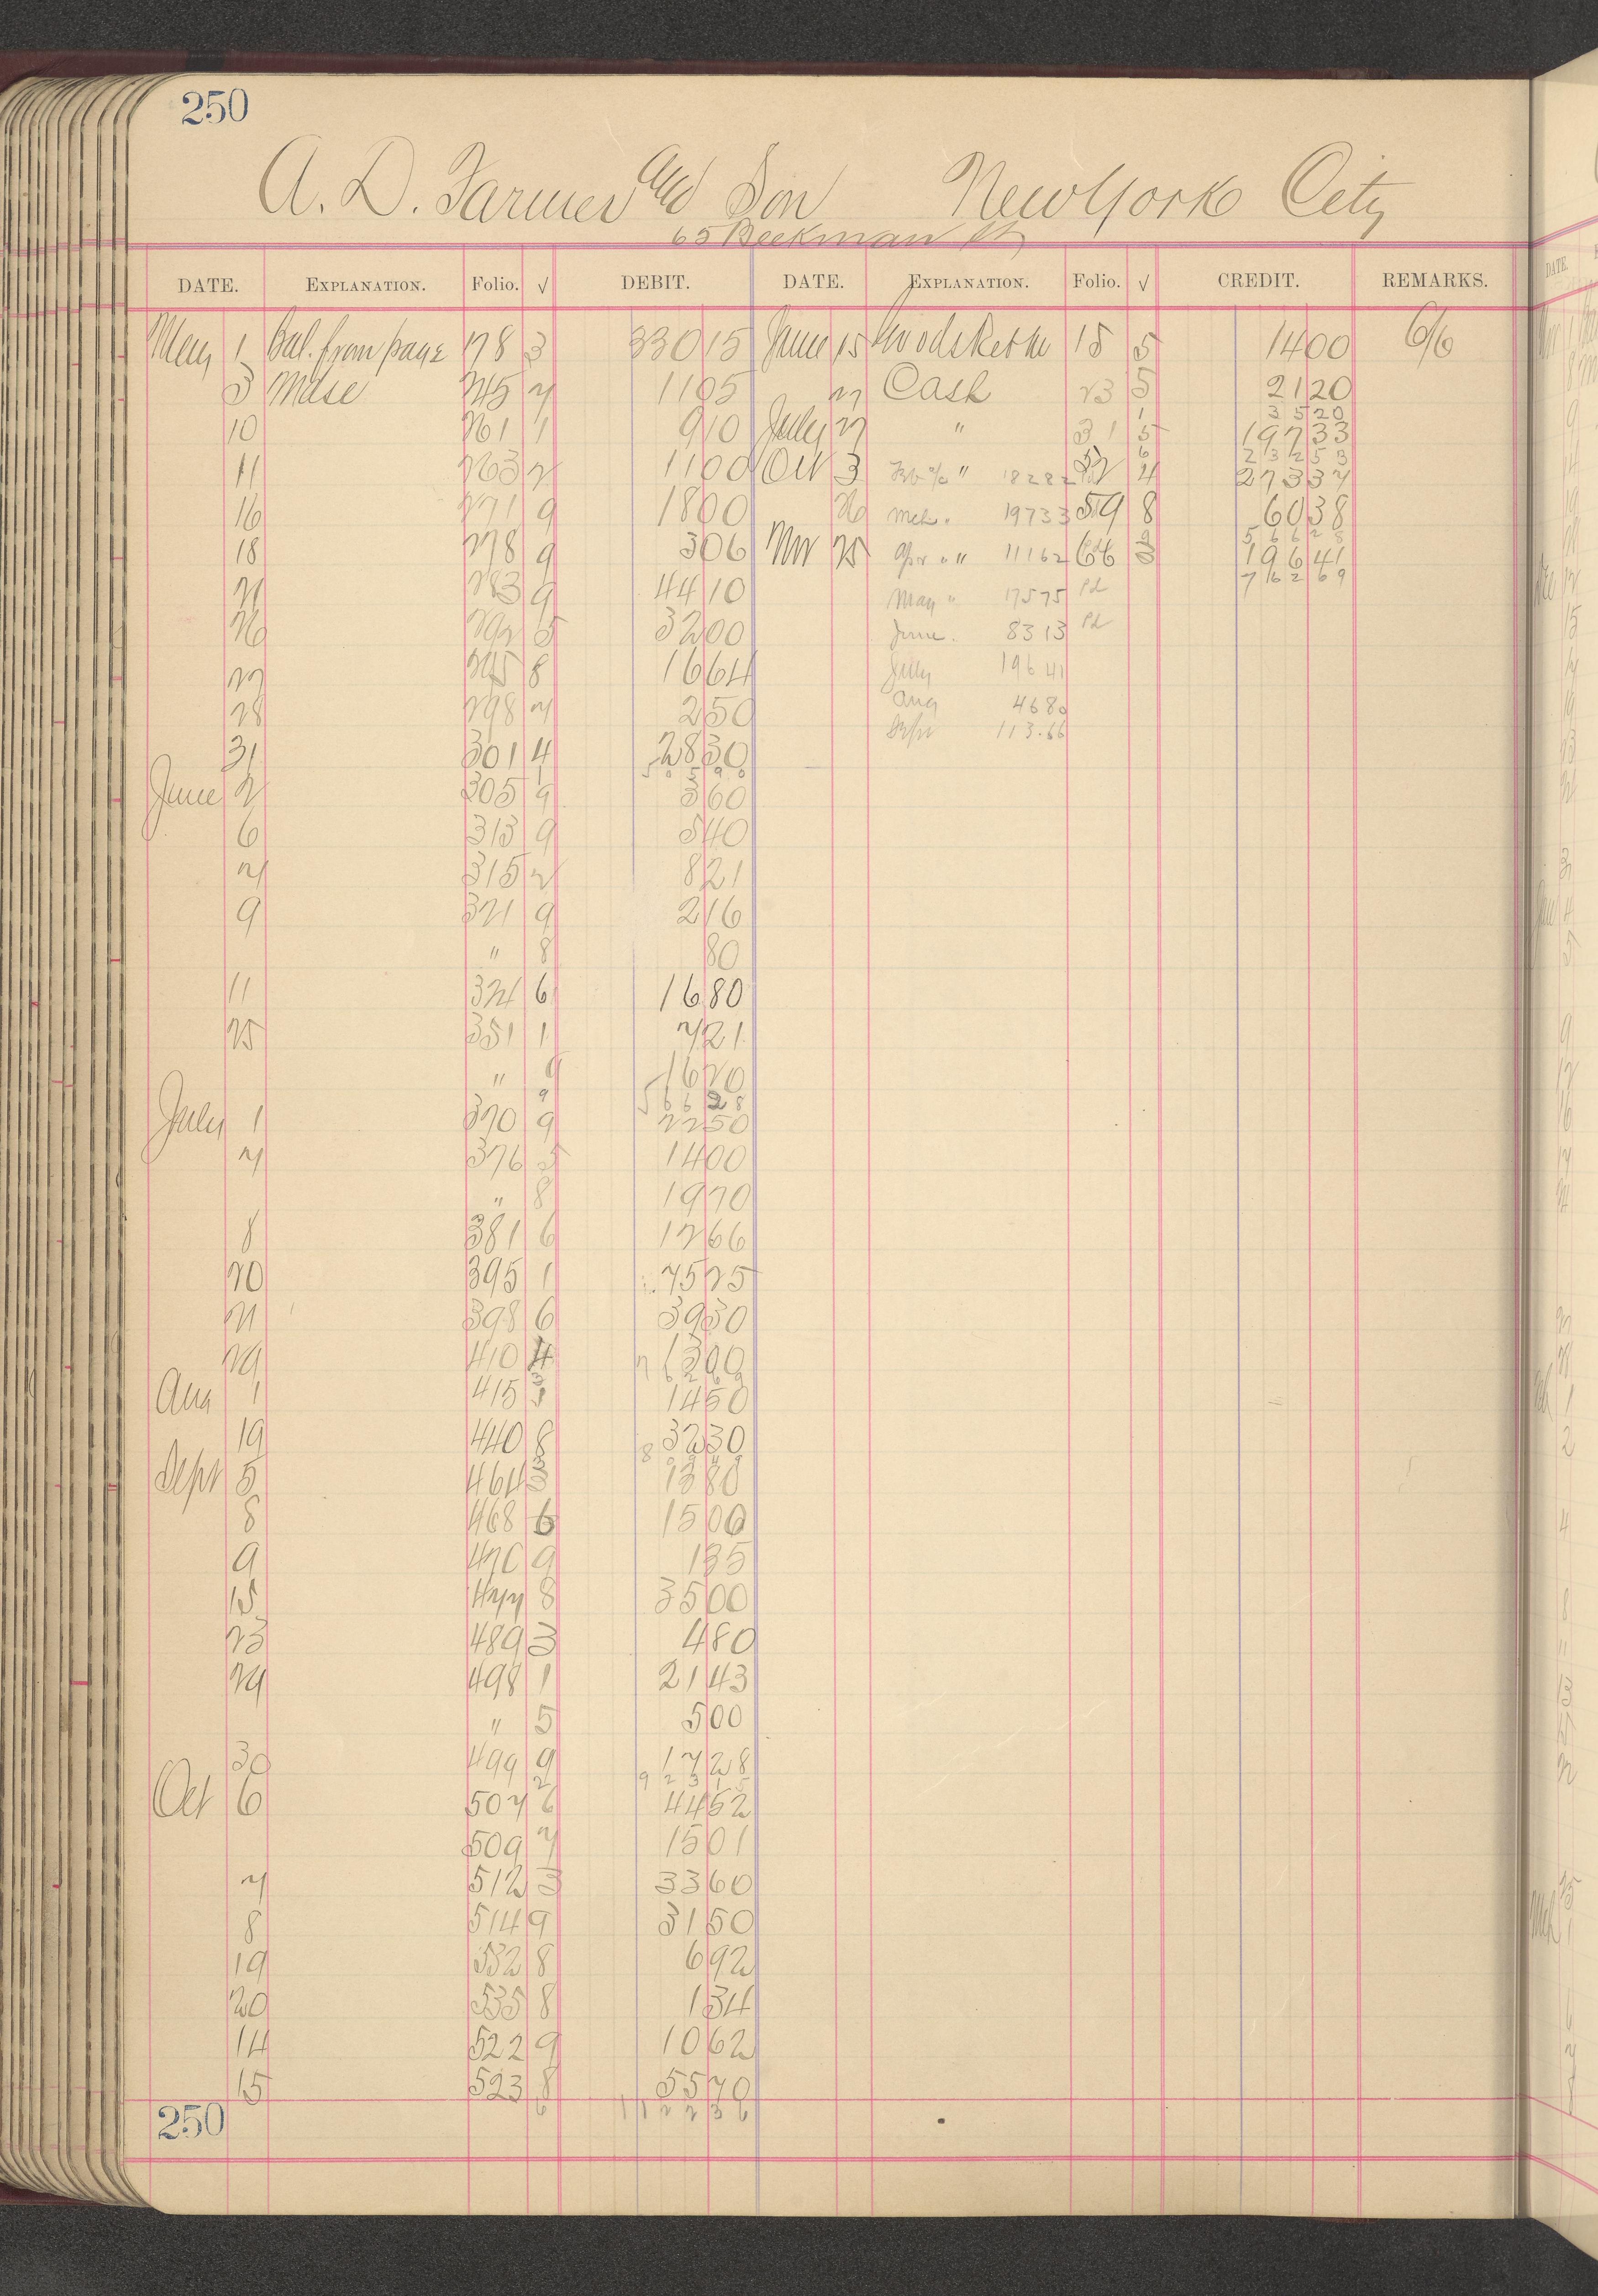 250
A. D. Farmer and Son New York City
65 Beekman St
DATE. EXPLANATION. Folio. √ DEBIT. DATE. EXPLANATION. Folio. √ CREDIT. REMARKS.
May 1 Bal. from page 178 3 330 15 June 15 15 5 14 00 6/6
3 Mdse 245 7 11 05 27 Cash 23 5 21 20
35 20
10 261 1 9 10 July 27 " 31 5 197 33
232 53
11 263 2 11 00 Oct 3 " 182 82 52 4 273 37
16 271 9 18 00 26 Mch " 197 33 59 8 60 38
566 28
18 278 9 3 06 Nov 25 Apr " " 111 62 Pd 66 3 196 41
762 69
21 283 9 44 10 May " 175 75 Pd
26 292 5 32 00 June " 83 13 Pd
27 295 8 16 64 July 196 41
28 298 7 2 50 Aug 46 80
31 301 4 28 30 Sept 113.66
505 90
June 2 305 9 3 60
6 313 9 5 40
7 315 2 8 21
9 321 9 2 16
" 8 80
11 324 6 16 80
25 351 1 7 21
" 9 16 20
566 28
July 1 370 9 22 50
7 376 5 14 00
" 8 19 70
8 381 6 12 66
20 395 1 75 25
21 398 6 39 30
29 410 4 13 00
762 69
Aug 1 415 3 14 50
19 440 8 32 30
Sept 5 464 3 13 80
8 468 6 15 00
9 470 9 1 35
15 477 8 35 00
23 489 3 4 80
29 498 1 21 43
" 5 5 00
30 499 9 17 28
923 15
Oct 6 507 6 44 52
509 7 15 01
7 512 3 33 60
8 514 9 31 50
19 532 8 6 92
20 535 8 1 34
14 522 9 10 62
15 523 8 55 70
1122 36
250